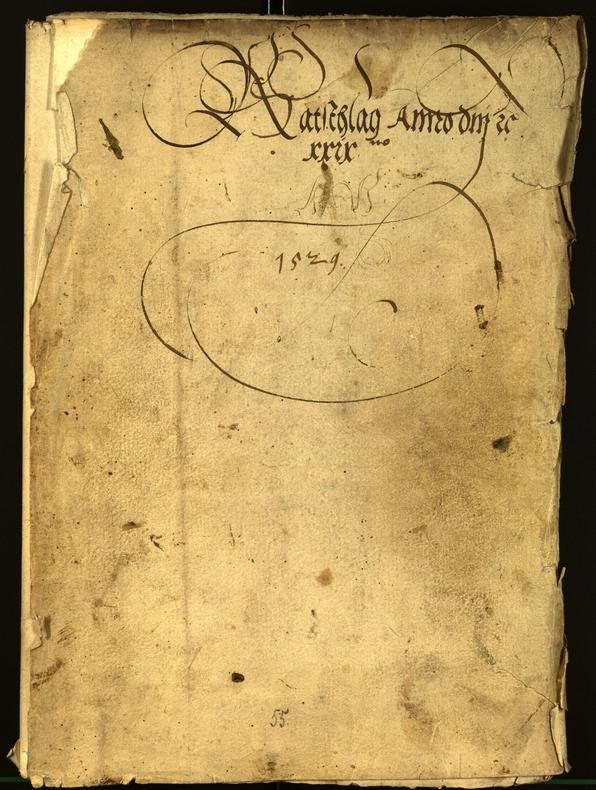 Ratschlag Anno dm̄ ꝛc
xxix no
1529.
55.